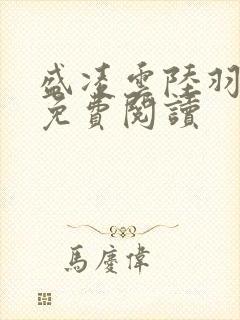 盛凌雲陸羽
免費閱讀
馬慶偉